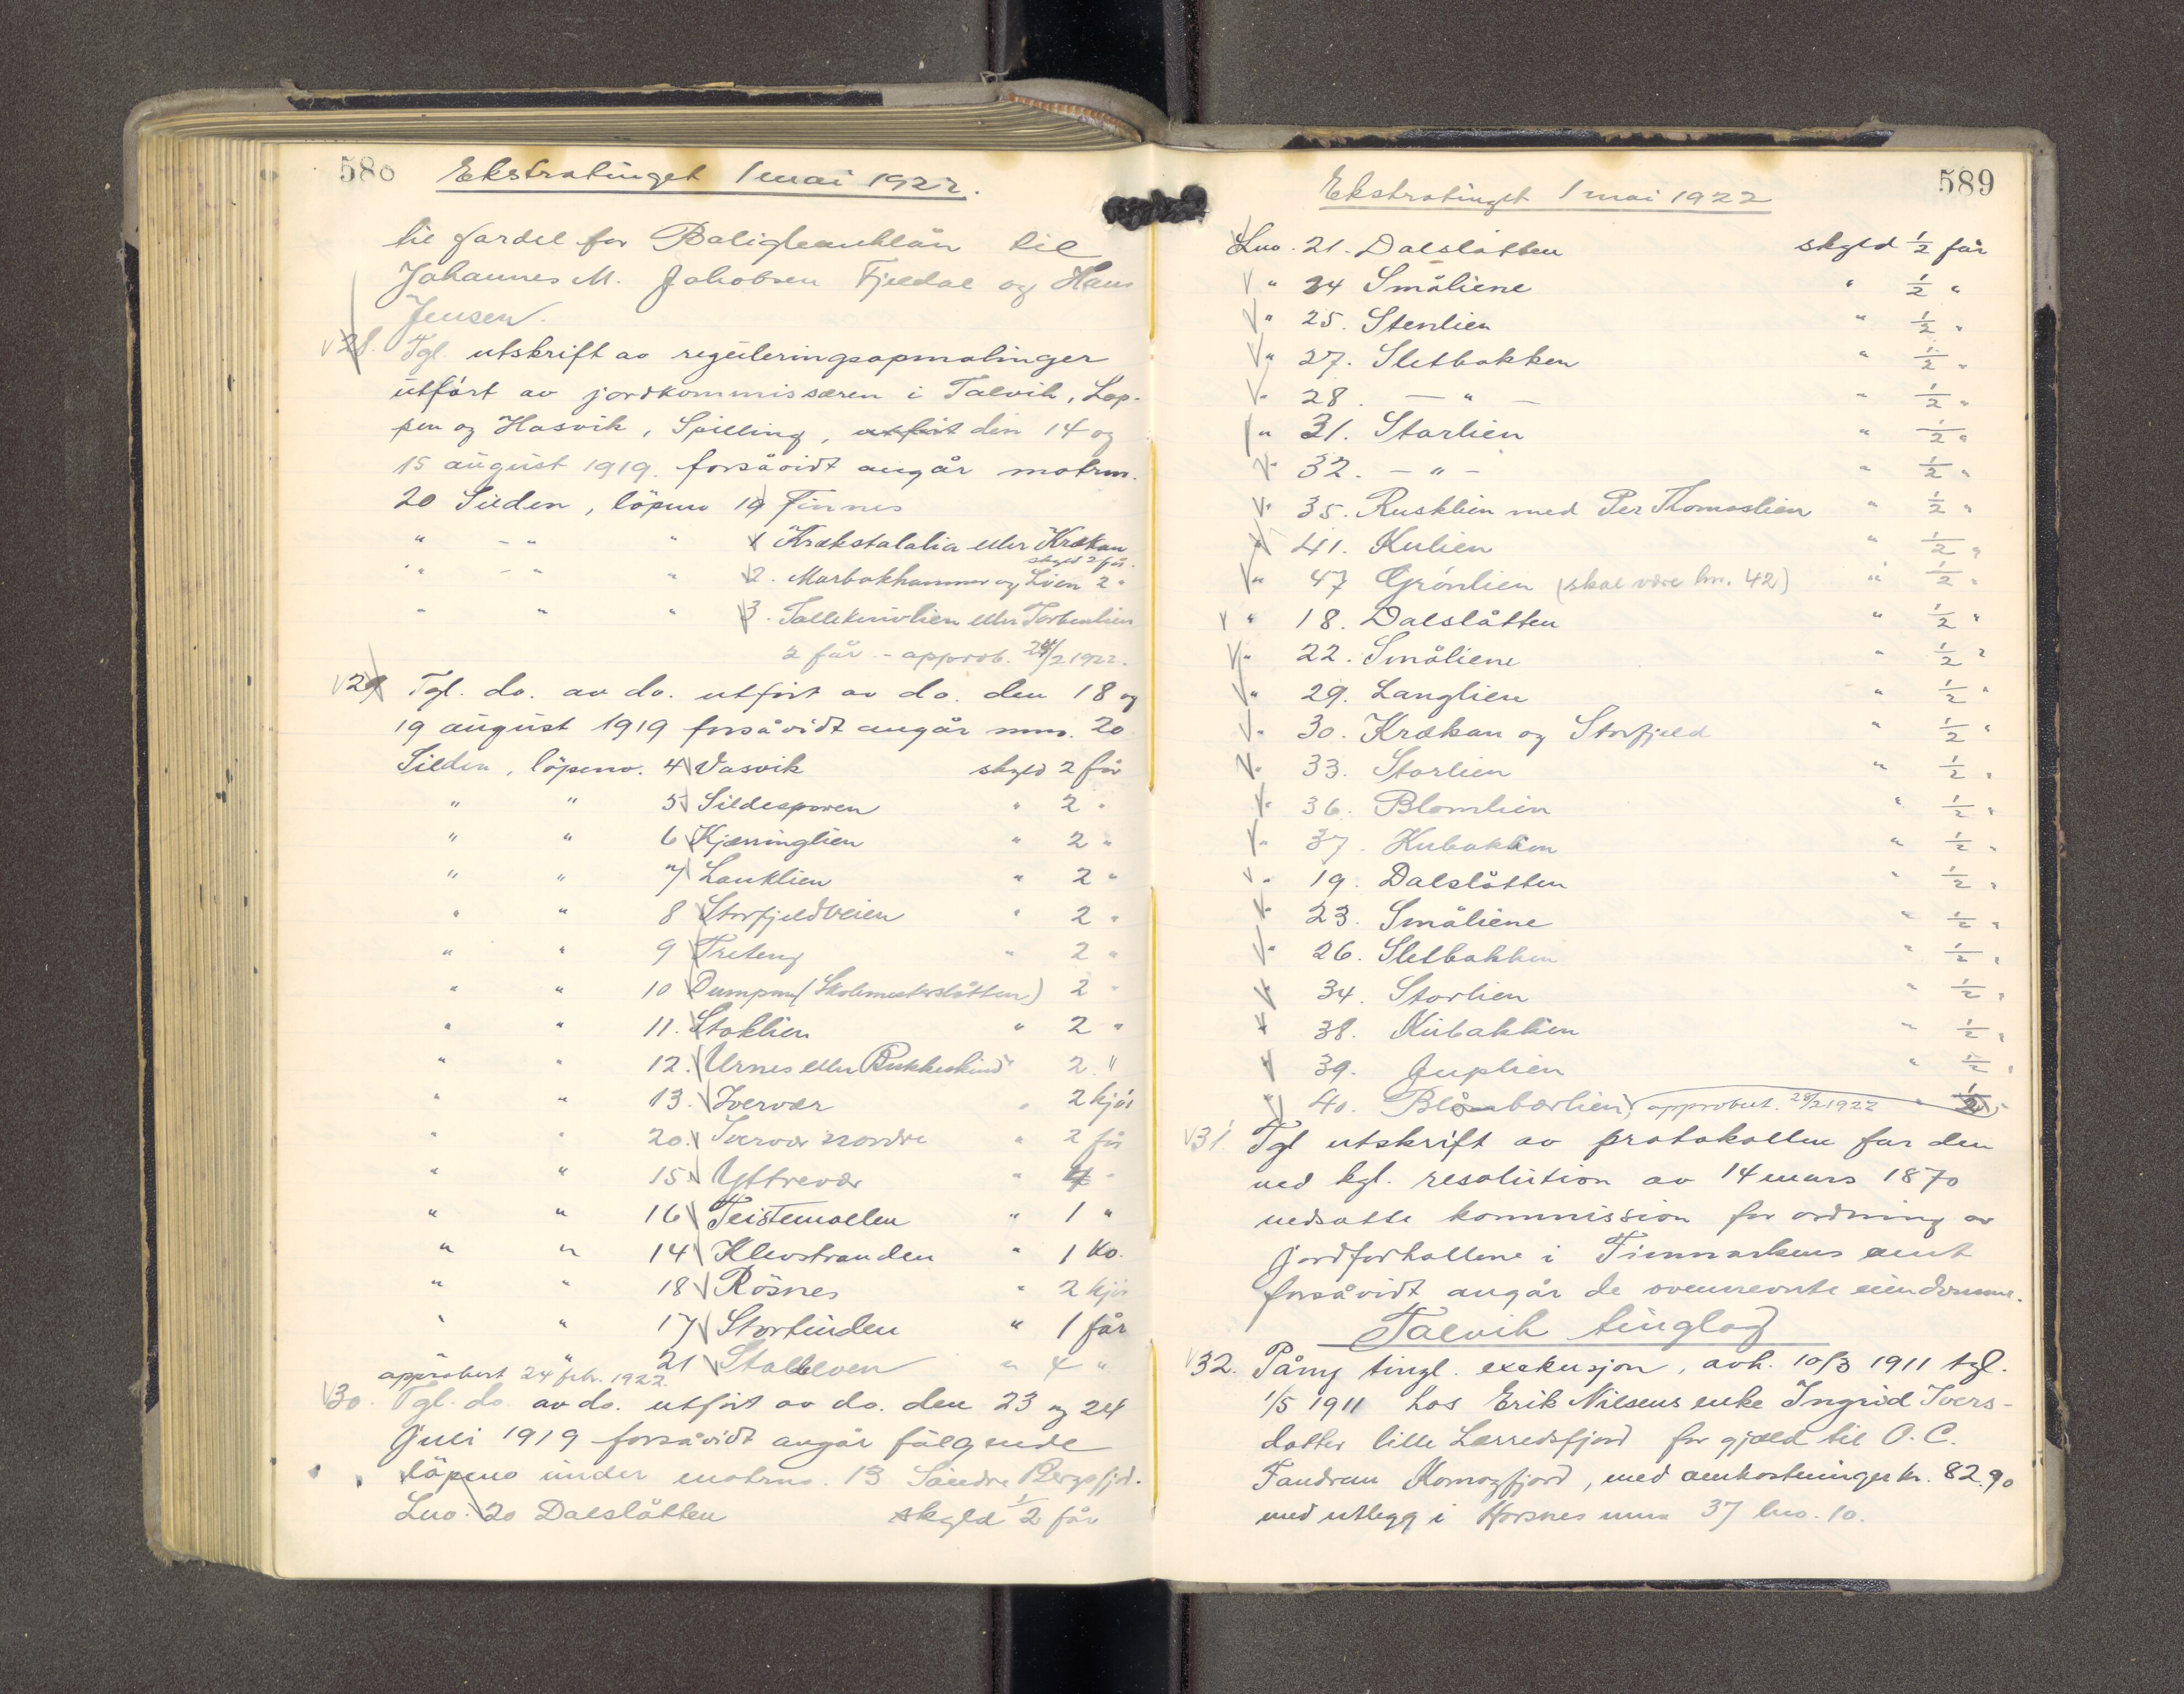 588
Ekstratinget 1 mai 1922.
til fordel for Boliglaanklån til
Johannes M. Jakobsen Fjeldal og Hans
Jensen.
28. Tgl. utskrift av reguleringsopmålinger
utført av jordkommissæren i Talvik, Lop-
pen og Hasvik, Spilling, utført den 14 og
15 august 1919. forsåvidt angår matrnr.
20 Silden, löpeno 19 Finnes
" - " " 1 Krækstalalia eller Krækan
skyld 2 får.
" - " " 2. Marbakhammer og Lien 2 "
" " " 3. Tolleknivlien eller Torbenlien
2 får - approb. 24/2 1922.
29 Tgl. do. av do. utført av do. den 18 og
19 august 1919 forsåvidt angår mno. 20
Silden, löpeno. 4 Vasvik skyld 2 får
" " 5 Sildesporen " 2 "
" " 6 Kjærringlien " 2 "
" " 7 Lauklien " 2 "
" " 8 Storfjeldveien " 2 "
" " 9 Treteng " 2 "
" " 10 Dumpen (Skolmesterslåtten) 2 "
" " 11. Stoklien " 2 "
" " 12. Urnes eller Bukkeskind " 2 "
" " 13. Ivervær " 2 kjör
" " 20. Ivervær nordre " 2 får
" " 15 Yttrevær " 4 "
" " 16 Teistemoellen " 1 "
" " 14 Klevstranden " 1 ko.
" " 18 Rösnes " 2 kjör
" " 17 Stortinden " 1 får
" 21 Stalleven " 4 "
approbert 24 febr. 1922.
30. Tgl. do. av do. utført av do. den 23 og 24
Juli 1919 forsåvidt angår fölgende
löpeno under matrno. 13 Söndre Bergsfjord.
Lno. 20 Dalslåtten skyld 1/2 får
589
Ekstratinget 1 mai 1922
Lno. 21. Dalslåtten skyld 1/2 får
" 24 Småliene " 1/2 "
" 25. Stenlien " 1/2 "
" 27. Sletbakken " 1/2 "
" 28. — " — " 1/2 "
" 31. Storlien " 1/2 "
" 32. — " — " 1/2 "
" 35. Rusklien med Per Thomaslien " 1/2 "
" 41. Kulien " 1/2 "
" 47 Grönlien (skal være lnr. 42) " 1/2 "
" 18. Dalslåtten " 1/2 "
" 22. Småliene " 1/2 "
" 29. Langlien " 1/2 "
" 30. Krækan og Storfjeld " 1/2 "
" 33. Storlien " 1/2 "
" 36. Blomlien " 1/2 "
" 37. Kubakken " 1/2 "
" 19. Dalslåtten " 1/2 "
" 23. Småliene " 1/2 "
" 26. Sletbakken " 1/2 "
" 34. Storlien " 1/2 "
" 38. Kubakken " 1/2 "
" 39. Juplien " 1/2 "
" 40. Blåbærlien, approbert. 28/2 1922 " 1/2 "
31. Tgl utskrift av protokollen for den
ved kgl. resolution av 14 mars 1870
nedsatte kommission for ordning av
jordforholdene i Finmarkens amt
forsåvidt angår de ovennevnte eiendomme.
Talvik tinglag
32. Påny tingl. exekusjon, avh. 10/3 1911 tgl.
1/5 1911 hos Erik Nilsens enke Ingrid Ivers-
datter lille Lerredsfjord for gjæld til O. C.
Fandrem Komagfjord, med omkostninger kr. 82.90
med utlegg i Horsnes mno 37 lno. 10.